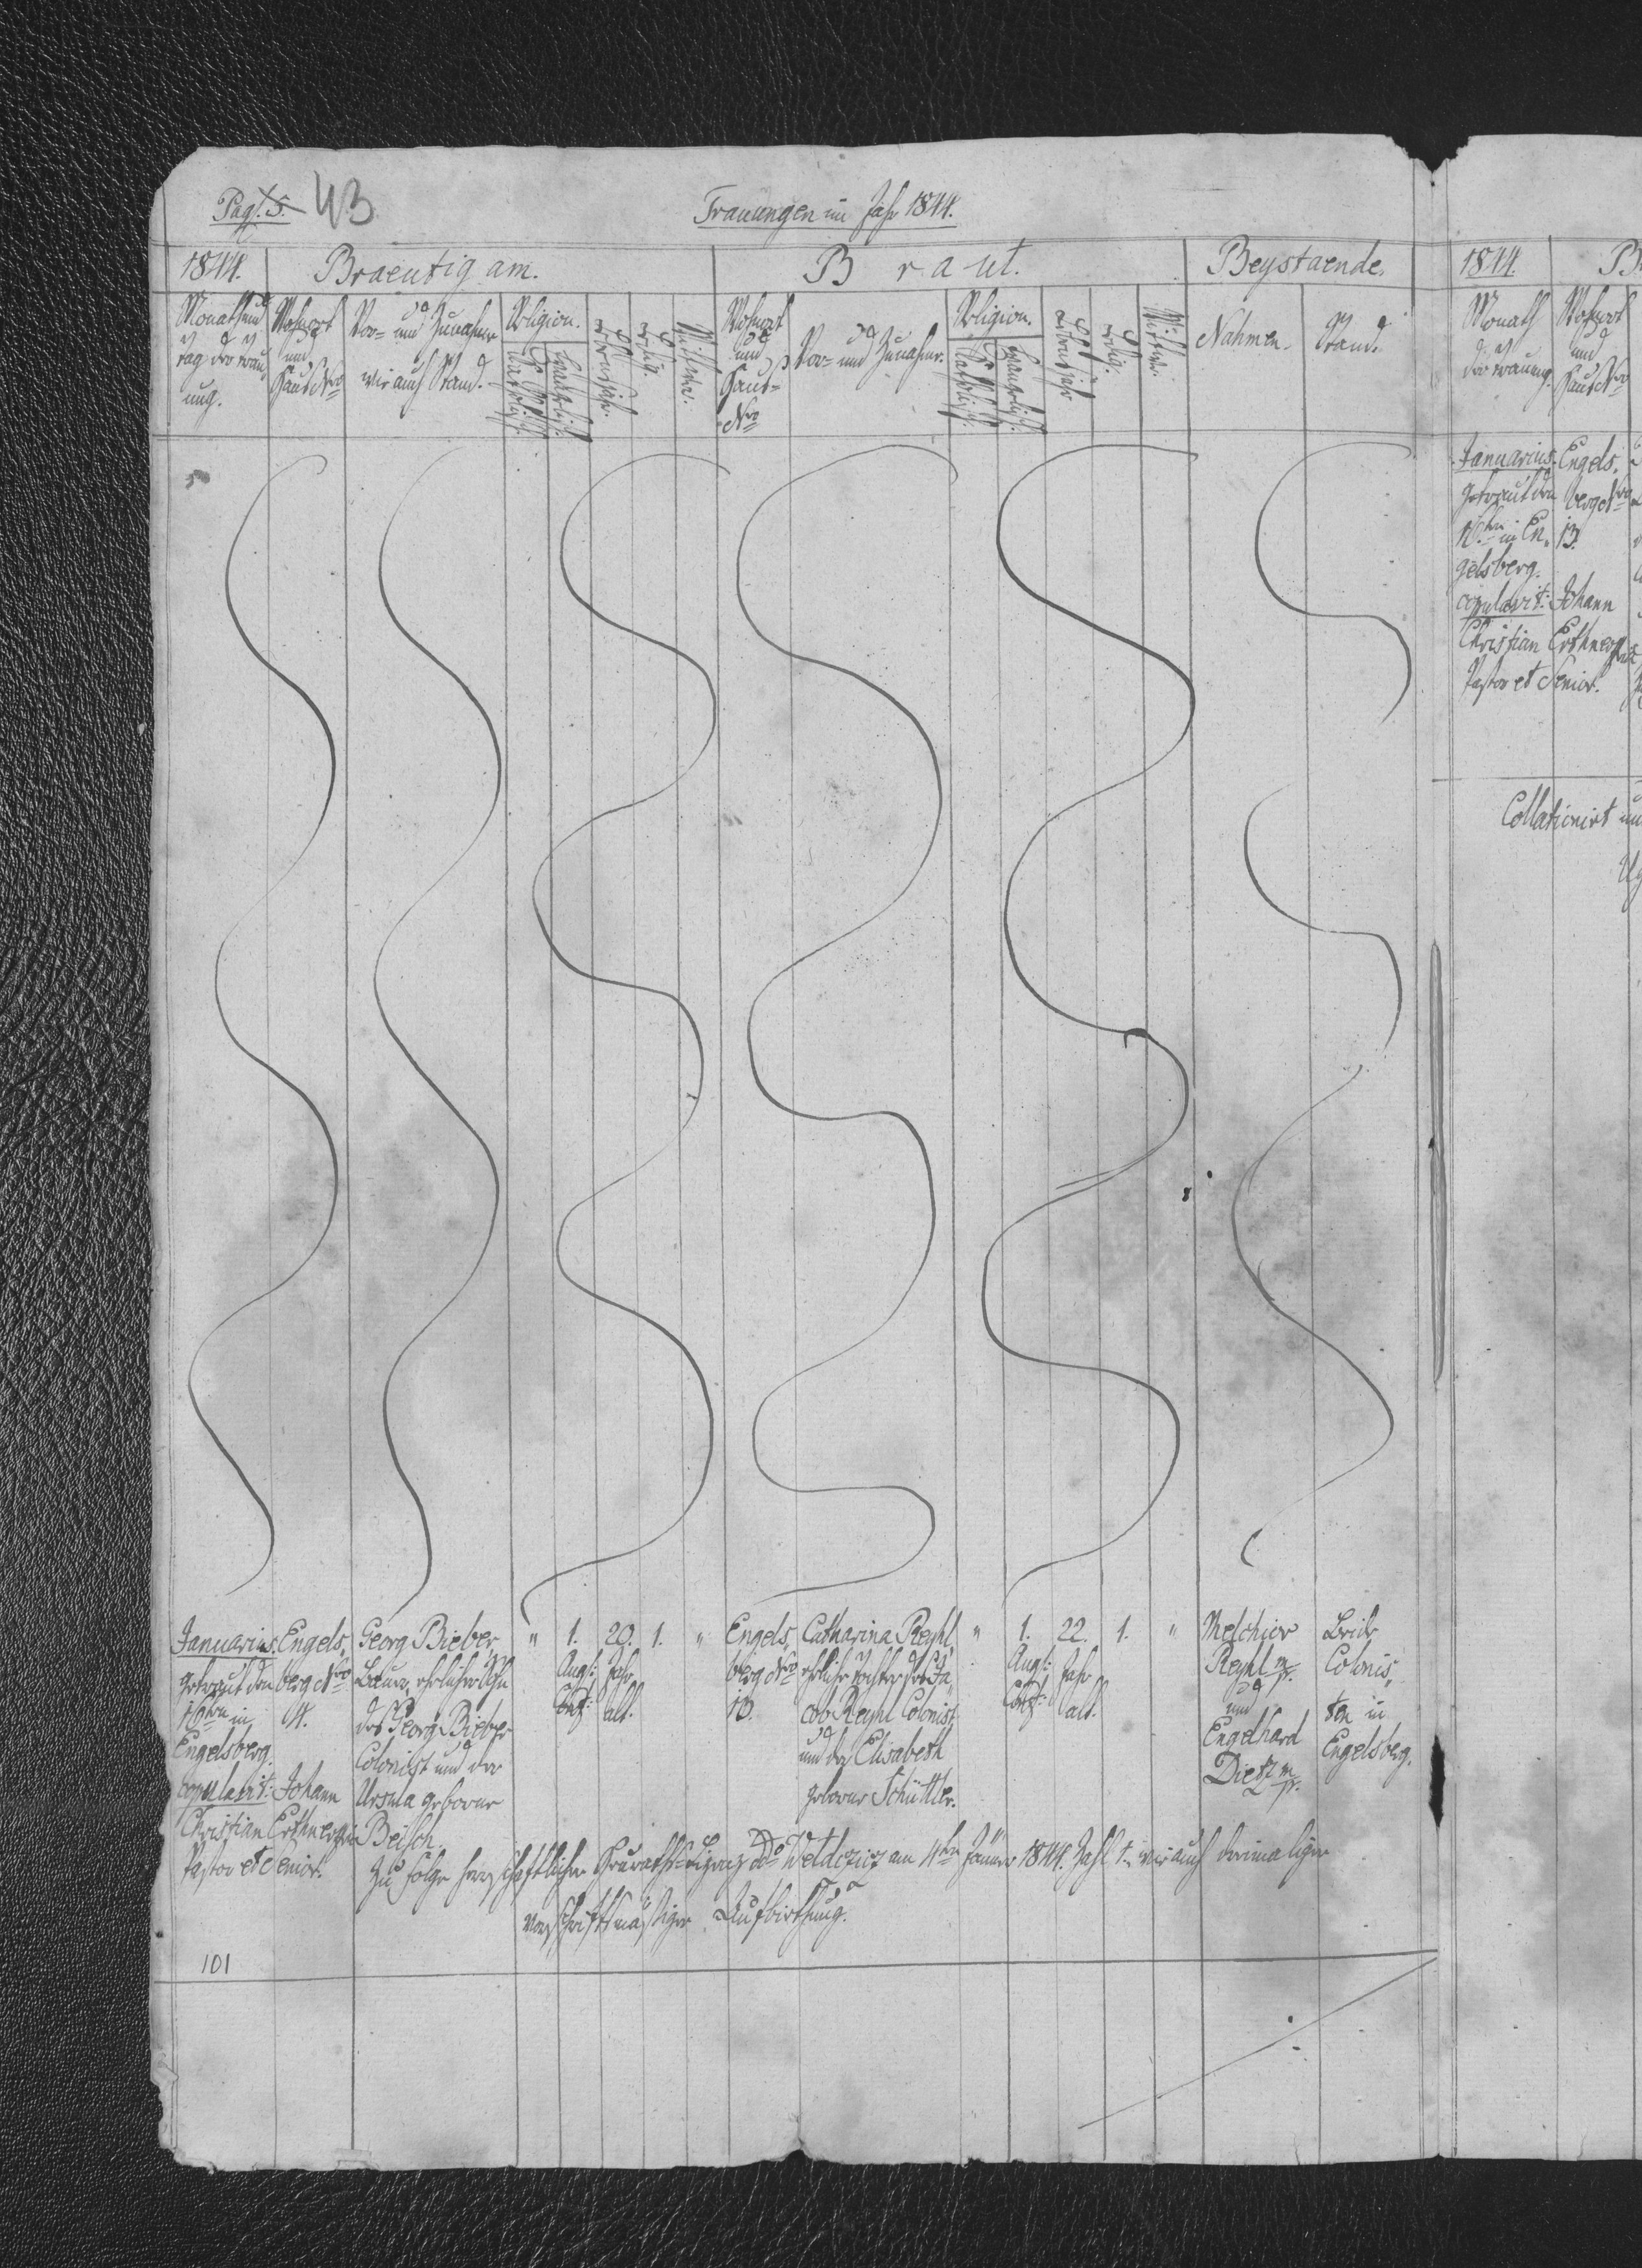 Pag. 5. 43
Trauungen im Jahr 1844.
1844. Braeutigam. Braut. Beystaende.
Monath und Tag der Trauung.
Wohnort und Haus Nro
Vor- und Zunahme wie auch Stand.
Religion.
Katholisch.
Evangelisch.
Lebensjahr.
Ledig.
Wittwer.
Wohnort und Haus-Nro
Vor- und Zunahme.
Religion.
Katholisch.
Evangelisch.
Lebensjahr
Ledig.
Wittwe.
Nahmen.
Stand.
Januarius.
getraut den
in
Engelsberg.
copulavit: Johann
Christian
Pastor et Senior.
Engels,
berg Nro
14.
Georg Bieber,
Bauer, ehelicher Sohn
des Georg Bieber
Colonist und der
Ursula geborne
Beisch.
" 1. 20. 1. "
Augs:
Conf:
Jahr
alt.
Engels,
berg Nro
13.
Catharina Reyhl,
eheliche Tochter des Ja,
cob Reyhl Colonist,
und der Elisabeth
geborne Schüttler.
" 1. 22. 1. "
Augs:
Conf:
Jahr
alt.
Melchior
Reyhl
und
Engelhard
Dietz
Beide
Colonis,
ten in
Engelsberg.
Zu Folge herrschaftlicher Heuraths-Lizenz ddo Weldzicz am 4ten Jänner 1844. Zahl 1. wie auch dreimaliger
vorschriftsmäßiger Aufbiethung.
101
1844. B
Monath
der Trauung.
Wohnort
und
Haus Nro
Januarius.
getraut den
in En,
gelsberg.
copulavit: Johann
Christian
Pastor et Senior.
Engels,
berg Nro
13.
Collationirt